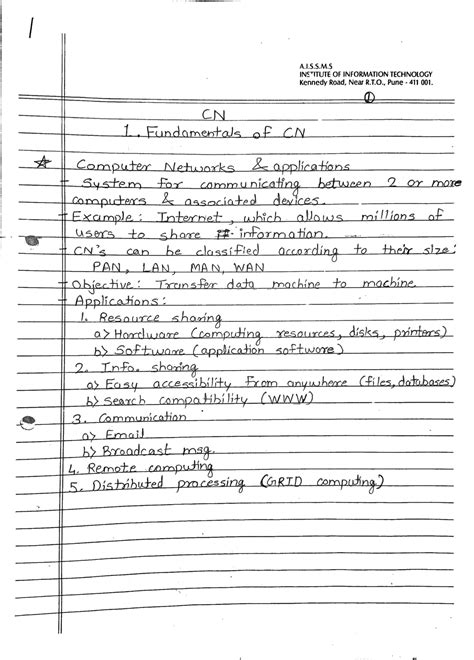 1
A.I.S.S.M.S
INSTITUTE OF INFORMATION TECHNOLOGY
Kennedy Road, Near R.T.O., Pune - 411 001.
①
CN
1. Fundamentals of CN
☆ Computer Networks & applications
- System for communicating between 2 or more
computers & associated devices.
- Example: Internet, which allows millions of
users to share information.
- CN's can be classified according to their size:
PAN, LAN, MAN, WAN
- Objective: Transfer data machine to machine
- Applications:
1. Resource sharing
a> Hardware (computing resources, disks, printers)
b> Software (application software)
2. Info. sharing
a> Easy accessibility from anywhere (files, databases)
b> Search compatibility (WWW)
3. Communication
a> Email
b> Broadcast msg.
4. Remote computing
5. Distributed processing (GRID computing)